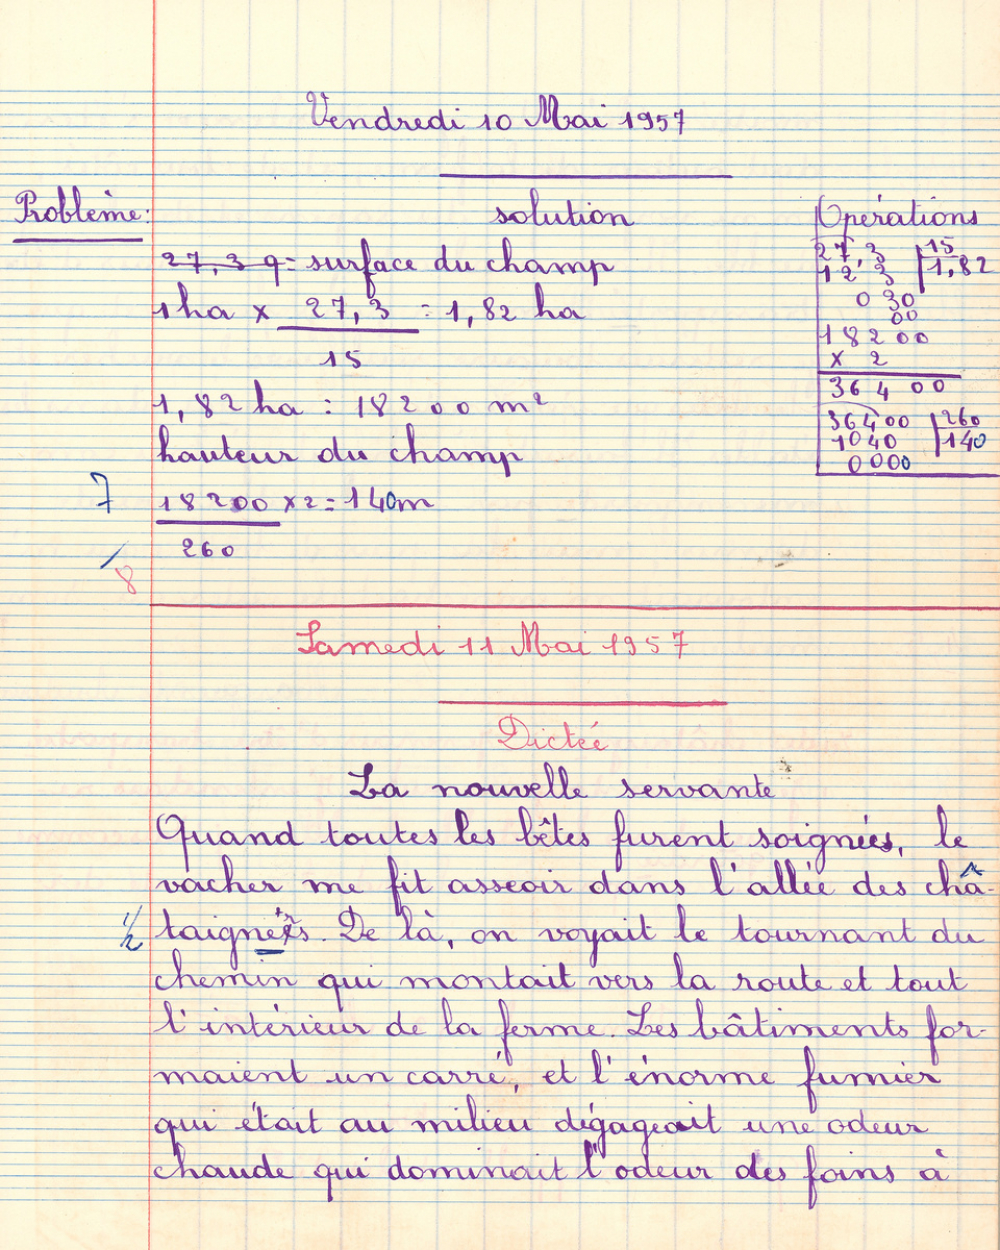 Vendredi 10 Mai 1957
Problème:
solution
27,3 q = surface du champ
1 ha x 27,3 = 1,82 ha
15
1,82 ha = 18200 m²
hauteur du champ
18200 x 2 = 140m
260
7
/8
Opérations
27,3 | 15
12 3 | 1,82
0 30
00
18200
x 2
36400
36400 | 260
1040 | 140
0000
Samedi 11 Mai 1957
Dictée
La nouvelle servante
Quand toutes les bêtes furent soignées, le
vacher me fit asseoir dans l'allée des châ-
½ taigners. De là, on voyait le tournant du
chemin qui montait vers la route et tout
l'intérieur de la ferme. Les bâtiments for-
maient un carré, et l'énorme fumier
qui était au milieu dégageait une odeur
chaude qui dominait l'odeur des foins à